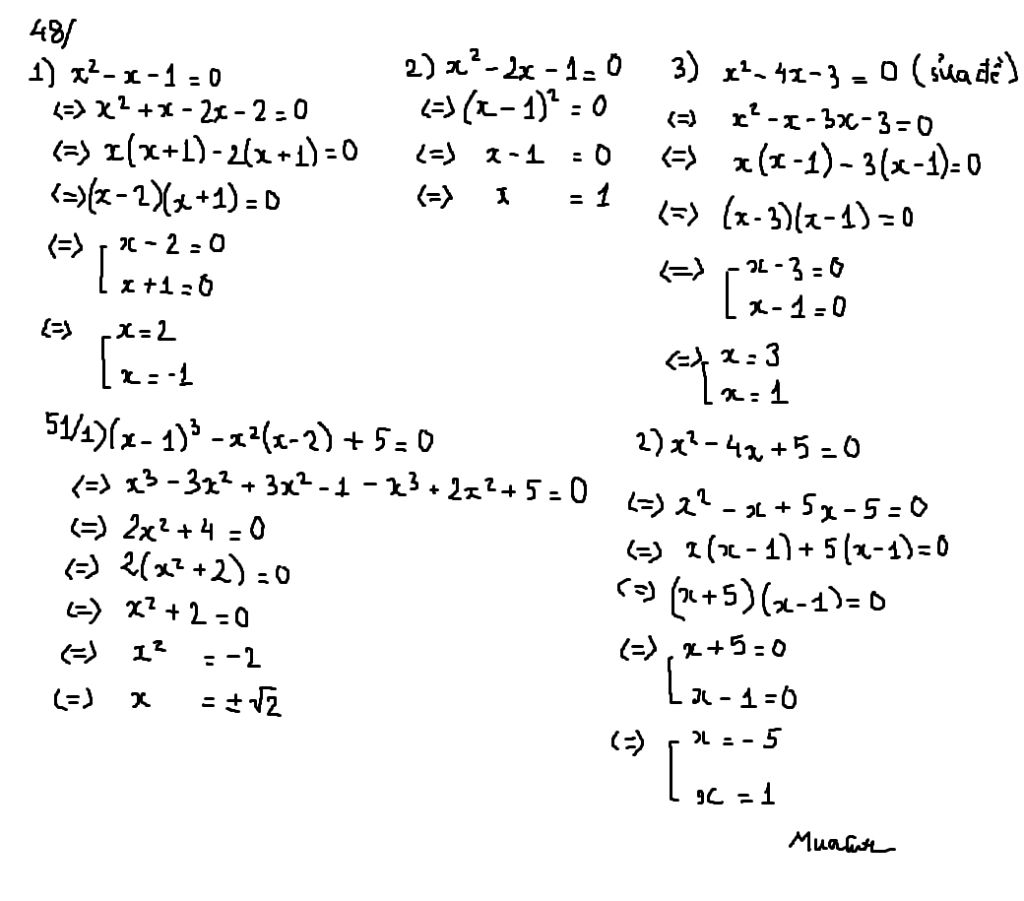 48/
1) x² - x - 1 = 0
<=> x² + x - 2x - 2 = 0
<=> x(x+1) - 2(x+1) = 0
<=> (x-2)(x+1) = 0
<=> [ x - 2 = 0
x + 1 = 0
<=> [ x = 2
x = -1
2) x² - 2x - 1 = 0
<=> (x-1)² = 0
<=> x - 1 = 0
<=> x = 1
3) x² - 4x - 3 = 0 (sửa đề)
<=> x² - x - 3x - 3 = 0
<=> x(x-1) - 3(x-1) = 0
<=> (x-3)(x-1) = 0
<=> [ x - 3 = 0
x - 1 = 0
<=> [ x = 3
x = 1
51/1) (x-1)³ - x²(x-2) + 5 = 0
<=> x³ - 3x² + 3x² - 1 - x³ + 2x² + 5 = 0
<=> 2x² + 4 = 0
<=> 2(x² + 2) = 0
<=> x² + 2 = 0
<=> x² = -2
<=> x = ±√2
2) x² - 4x + 5 = 0
<=> x² - x + 5x - 5 = 0
<=> x(x-1) + 5(x-1) = 0
<=> (x+5)(x-1) = 0
<=> [ x + 5 = 0
x - 1 = 0
<=> [ x = -5
x = 1